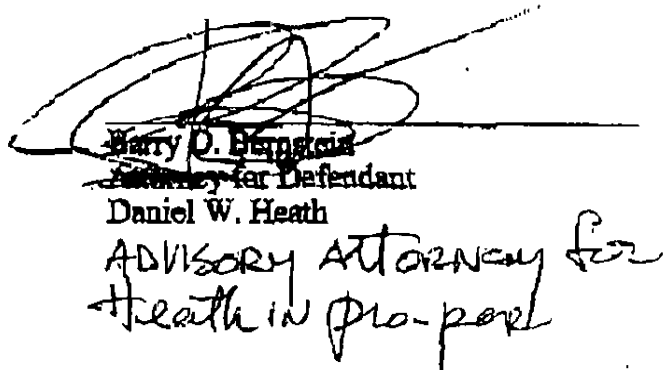 Barry O. Bernstein
Attorney for Defendant
Daniel W. Heath
ADVISORY AttORNEy for
Heath IN pro-per